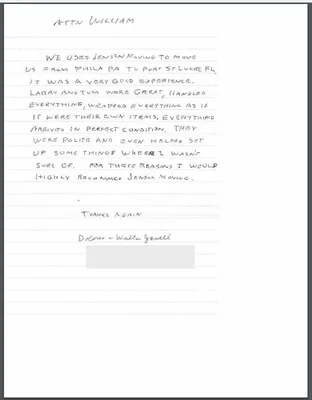 ATTN WILLIAM
WE USED JENSEN MOVING TO MOVE
US FROM PHILA PA TO PORT ST. LUCIE FL,
IT WAS A VERY GOOD EXPERIENCE.
LARRY AND TOM WERE GREAT, HANDLED
EVERYTHING, WRAPPED EVERYTHING AS IF
IT WERE THEIR OWN ITEMS, EVERYTHING
ARRIVED IN PERFECT CONDITION. THEY
WERE POLITE AND EVEN HELPED SET
UP SOME THINGS WHERE I WASN'T
SURE OF. FOR THESE REASONS I WOULD
HIGHLY RECOMMED JENSEN MOVING.
THANKS AGAIN
Dolores +